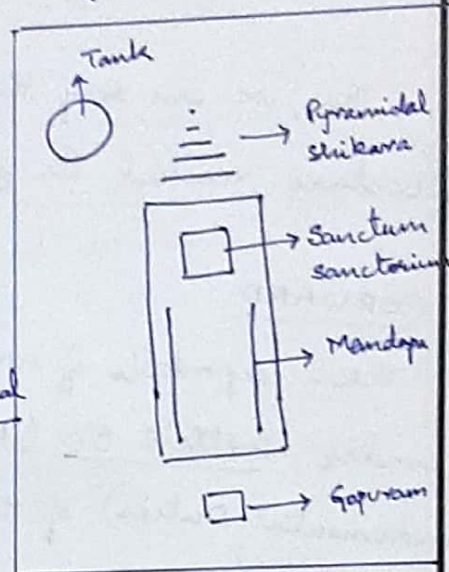 Tank
Pyramidal
shikara
Sanctum
sanctorium
Mandapa
al
Gopuram